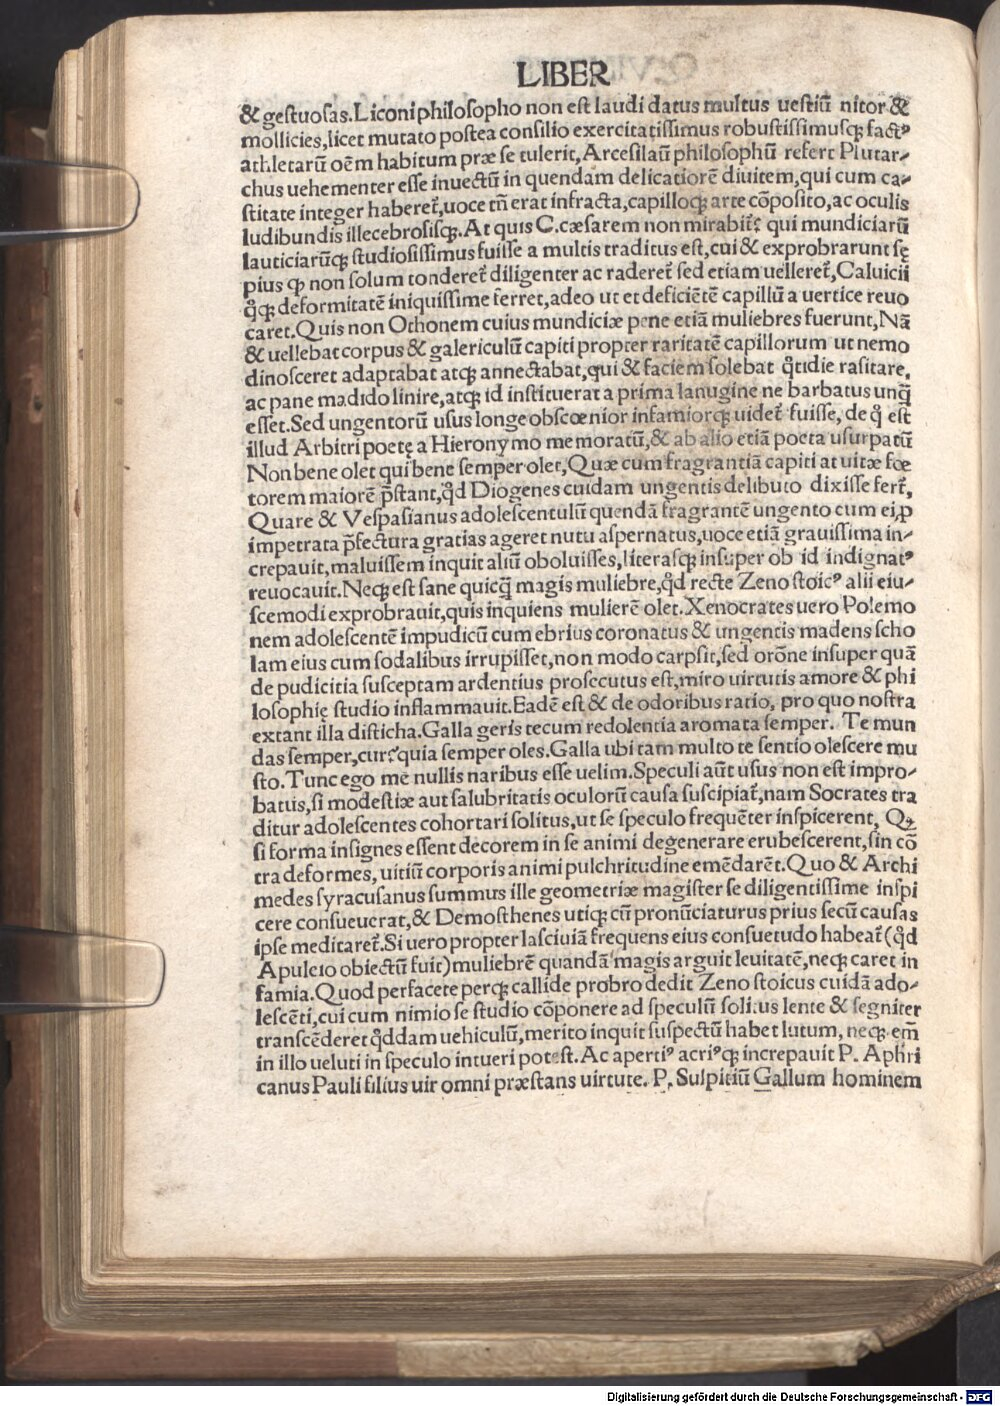 LIBER
& gestuosas.Liconi philosopho non est laudi datus multus uestiū nitor &
mollicies,licet mutato postea consilio exercitatissimus robustissimusqꝫ factꝰ
athletarū oēm habitum præ se tulerit,Arcesilaū philosophū refert Plutar-
chus uehementer esse inuectū in quendam delicatiorē diuitem,qui cum ca-
stitate integer haberet᷑,uoce tñ erat infracta,capilloqꝫ arte cōposito,ac oculis
ludibundis illecebrosisqꝫ.At quis C.cæsarem non mirabit᷑? qui mundiciarū
lauticiarūqꝫ studiosissimus fuisse a multis traditus est,cui & exprobrarunt sę
pius ꝙ non solum tonderet᷑ diligenter ac raderet᷑ sed etiam uelleret᷑,Caluicii
q̊qꝫ deformitatē iniquissime ferret,adeo ut et deficiētē capillū a uertice reuo
caret.Quis non Othonem cuius mundiciæ pene etiā muliebres fuerunt,Nā
& uellebat corpus & galericulū capiti propter raritatē capillorum ut nemo
dinosceret adaptabat atqꝫ annectabat,qui & faciem solebat q̊tidie rasitare,
ac pane madido linire,atqꝫ id instituerat a prima lanugine ne barbatus unq̄
esset.Sed ungentorū usus longe obscœnior infamiorqꝫ uidet᷑ fuisse, de q̊ est
illud Arbitri poetę a Hieronymo memoratū,& ab alio etiā poeta usurpatū
Non bene olet qui bene semper olet,Quæ cum fragrantiā capiti at uitæ fœ
torem maiorē p̄stant,q̊d Diogenes cuidam ungentis delibuto dixisse fert᷑,
Quare & Vespasianus adolescentulū quendā fragrantē ungento cum ei,ꝓ
impetrata p̄fectura gratias ageret nutu aspernatus,uoce etiā grauissima in-
crepauit,maluissem inquit aliū oboluisses,literasqꝫ insuper ob id indignatꝰ
reuocauit.Neqꝫ est sane quicq̄ magis muliebre,q̊d recte Zeno stoicꝰ alii eiu-
scemodi exprobrauit,quis inquiens mulierē olet.Xenocrates uero Polemo
nem adolescentē impudicū cum ebrius coronatus & ungentis madens scho
lam eius cum sodalibus irrupisset,non modo carpsit,sed orōne insuper quā
de pudicitia susceptam ardentius prosecutus est,miro uirtutis amore & phi
losophię studio inflammauit.Eadē est & de odoribus ratio, pro quo nostra
extant illa disticha.Galla geris tecum redolentia aromata semper. Te mun
das semper,cur?quia semper oles.Galla ubi tam multo te sentio olescere mu
sto.Tunc ego me nullis naribus esse uelim.Speculi aūt usus non est impro-
batus,si modestiæ aut salubritatis oculorū causa suscipiat᷑,nam Socrates tra
ditur adolescentes cohortari solitus,ut se speculo frequēter inspicerent, Qꝫ
si forma insignes essent decorem in se animi degenerare erubescerent,sin cō
tra deformes, uitiū corporis animi pulchritudine emēdarēt.Quo & Archi
medes syracusanus summus ille geometriæ magister se diligentissime inspi
cere consueuerat,& Demosthenes utiqꝫ cū pronūciaturus prius secū causas
ipse meditaret᷑.Si uero propter lasciuiā frequens eius consuetudo habeat᷑ (q̊d
Apuleio obiectū fuit)muliebrē quandā magis arguit leuitatē,neqꝫ caret in
famia.Quod perfacete perqꝫ callide probro dedit Zeno stoicus cuidā ado-
lescēti,cui cum nimio se studio cōponere ad speculū solitus lente & segniter
transcēderet q̊ddam uehiculū,merito inquit suspectū habet lutum, neqꝫ em̄
in illo ueluti in speculo intueri potest.Ac apertiꝰ acriꝰqꝫ increpauit P. Aphri
canus Pauli filius uir omni præstans uirtute. P. Sulpitiū Gallum hominem
Digitalisierung gefördert durch die Deutsche Forschungsgemeinschaft - DFG